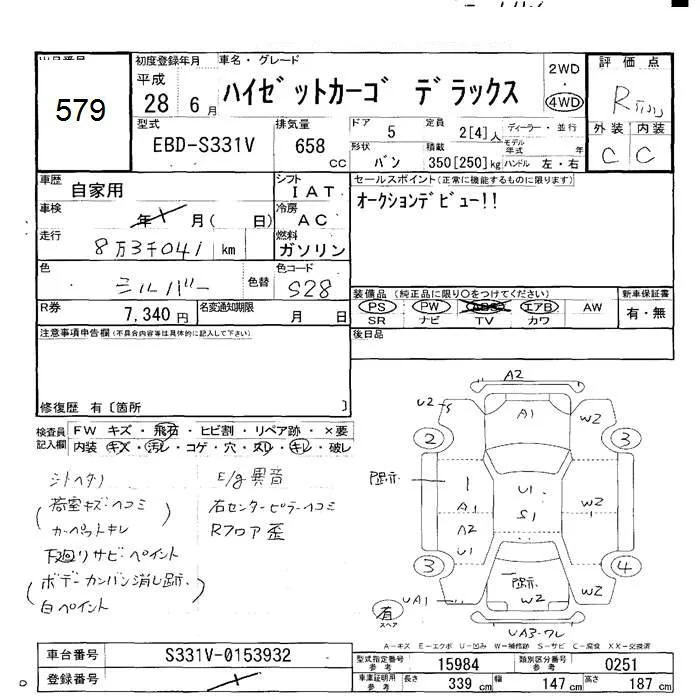 出品番号
579
初度登録年月
平成
28年 6月
車名・グレード
ハイゼットカーゴ デラックス
2WD
・
4WD
評価点
R
外装 内装
C C
型式
EBD-S331V
排気量
658 CC
ドア 5
定員 2[4]人
ディーラー・並行
モデル年式 年
形状 バン
積載 350[250]kg
ハンドル 左・右
車歴
自家用
シフト
IAT
車検
年 月( 日)
冷房
AC
走行
8万3千041 km
燃料
ガソリン
色
シルバー
色替
色コード
S28
R券
7,340円
名変通知期限
月 日
セールスポイント(正常に機能するものに限ります)
オークションデビュー!!
装備品 (純正品に限り○をつけてください)
PS PW ABS エアB AW
SR ナビ TV カワ
新車保証書
有・無
後日品
注意事項申告欄(不具合内容等は具体的に記入して下さい)
修復歴 有〔箇所 〕
検査員記入欄
FW キズ・飛石・ヒビ割・リペア跡・×要
内装・キズ・汚レ・コゲ・穴・スレ・キレ・破レ
シートヘタリ
(荷室キズ・ヘコミ
カーペットキレ)
下廻リサビ・ペイント
(ボデーカンバン消し跡.
白ペイント)
E/g異音
右センターピラーヘコミ
Rフロア歪
A2
U2-S
A1
W2
2
3
跡
A1
U1
S1
W2
A2
U1
W2
3
4
跡
W2
W2
UA1
有
スペア
UA3-ワレ
A-キズ E-エクボ U-凹み W-補修跡 S-サビ C-腐食 XX-交換済
車台番号
S331V-0153932
登録番号
型式指定番号 参考
15984
類別区分番号 参考
0251
車庫証明用 参考
長さ 339 cm
幅 147 cm
高さ 187 cm